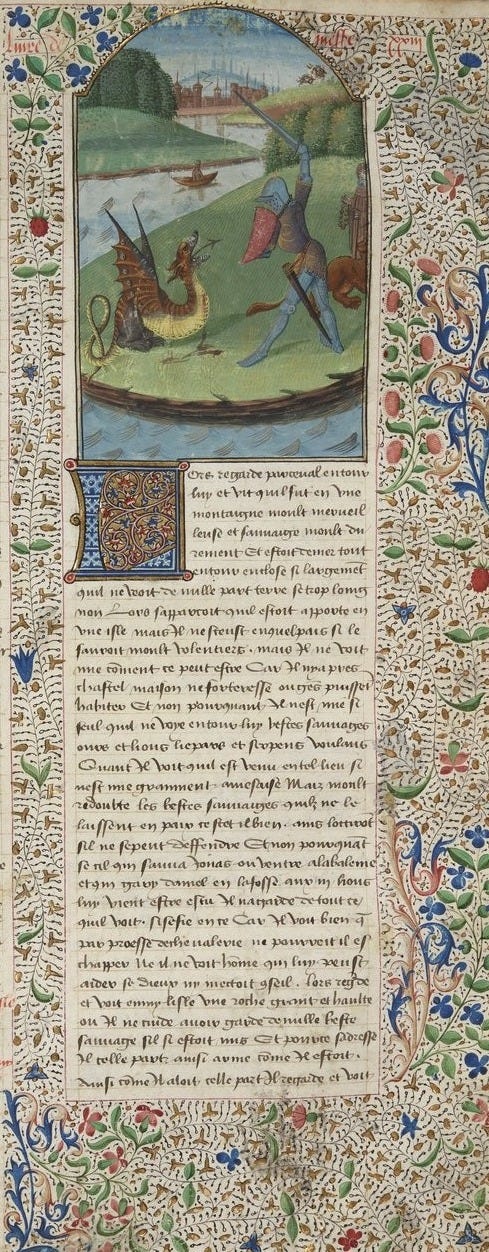 livre de messe xxviii
Lors regarde parceual entour
luy et vit quil fut en vne
montaigne moult merueil
leuse et sauuaige moult du
rement Et estoit de mer tout
entour enclose si largemet
quil ne voit de nulle part terre se trop loing
non Lors sapparcoit quil estoit apporte en
vne isle mais Il ne sceust en quel pais si le
sauroit moult volentiers . mais Il ne voit
mie coment ce peut estre Car Il ny a pres
chastel maison ne forteresse ou gens puisset
habiter Et non pourquant Il nest mie si
seul quil ne voye entour luy bestes sauuages
ours et lions liepars et serpens voulans
Quant Il voit quil est venu en tel lieu si
nest mie granment amesaise Maiz moult
redoubte les bestes sauuaiges quilz ne le
laissent en paix ce scet il bien
sil ne sepeut deffendre Et non pourquat
se cil qui sauua Jonas ou ventre a la baleine
et qui gary daniel en la fosse aux lions
luy vient estre escu Il na garde de tout ce
quil voit . Car Il voit bien q
par proesse de cheualerie ne pourroit il es
chapper ne il ne voit home qui luy peust
aider se dieux ny mectoit 9seil . lors regde
et voit enmy lisle vne roche grant et haulte
ou Il ne cuide auoir garde de nulle beste
sauuage sil si estoit mis Et pource sadresse
Il celle part ainsi arme come Il estoit .
Ainsi come Il aloit celle part Il regarde et voit